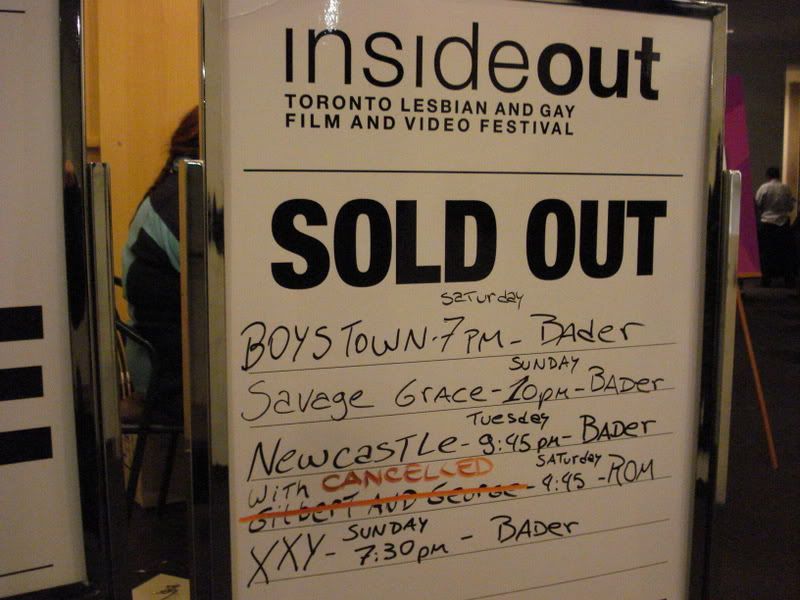 insideout
TORONTO LESBIAN AND GAY
FILM AND VIDEO FESTIVAL
SOLD OUT
Saturday
BOYSTOWN - 7PM - BADer
SUNDAY
Savage GRACE - 10pm - BADER
Tuesday
NewcasTLe - 9:45pm - BADER
with CANCELLED
Saturday
GILBERT AND GEORGE - 4:45 - ROM
SUNDAY
XXY - 7:30pm - BADer